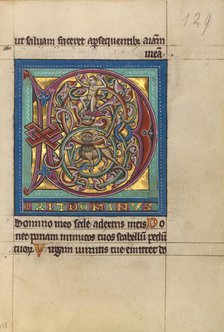 129
ut saluam faceret a persequentib; animā
meā.
D
IXIT DOMINVS
domino meo sede a dextris meis Do
nec ponam inimicos tuos scabellum pedū
tuoꝝ Virgam uirtutis tue emittet do